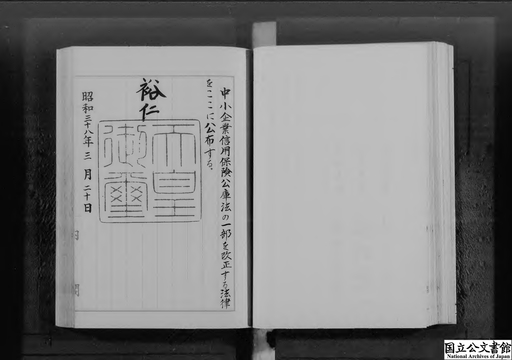 中小企業信用保険公庫法の一部を改正する法律
をここに公布する。
裕仁
天皇
御璽
昭和三十八年三月二十日
国立公文書館
National Archives of Japan